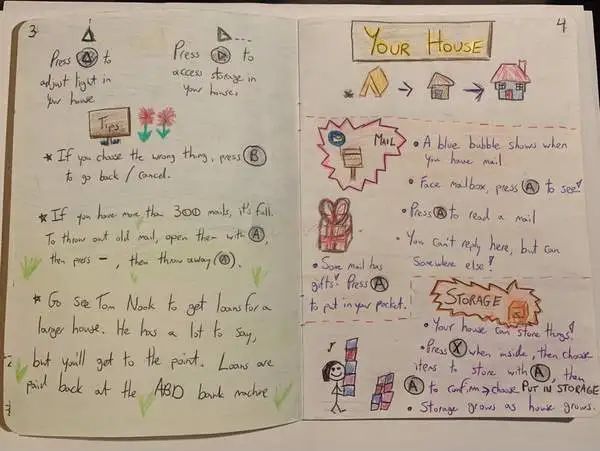 3
Press △ to
adjust light in
your house.
Press ▷ to
access storage in
your house.
Tips
★ If you choose the wrong thing, press B
to go back / cancel.
★ If you have more than 300 mails, it's full.
To throw out old mail, open them with A,
then press -, then throw away A.
★ Go see Tom Nook to get loans for a
larger house. He has a lot to say,
but you'll get to the point. Loans are
paid back at the ABD bank machine
4
YOUR HOUSE
MAIL
• A blue bubble shows when
you have mail
• Face mailbox, press A to see!
• Press A to read a mail
• You can't reply here, but can
somewhere else!
• Some mail has
gifts! Press A
to put in your pocket.
STORAGE
• Your house can store things!
• Press X when inside, then choose
items to store with A, then
A to confirm → choose PUT IN STORAGE
• Storage grows as house grows.